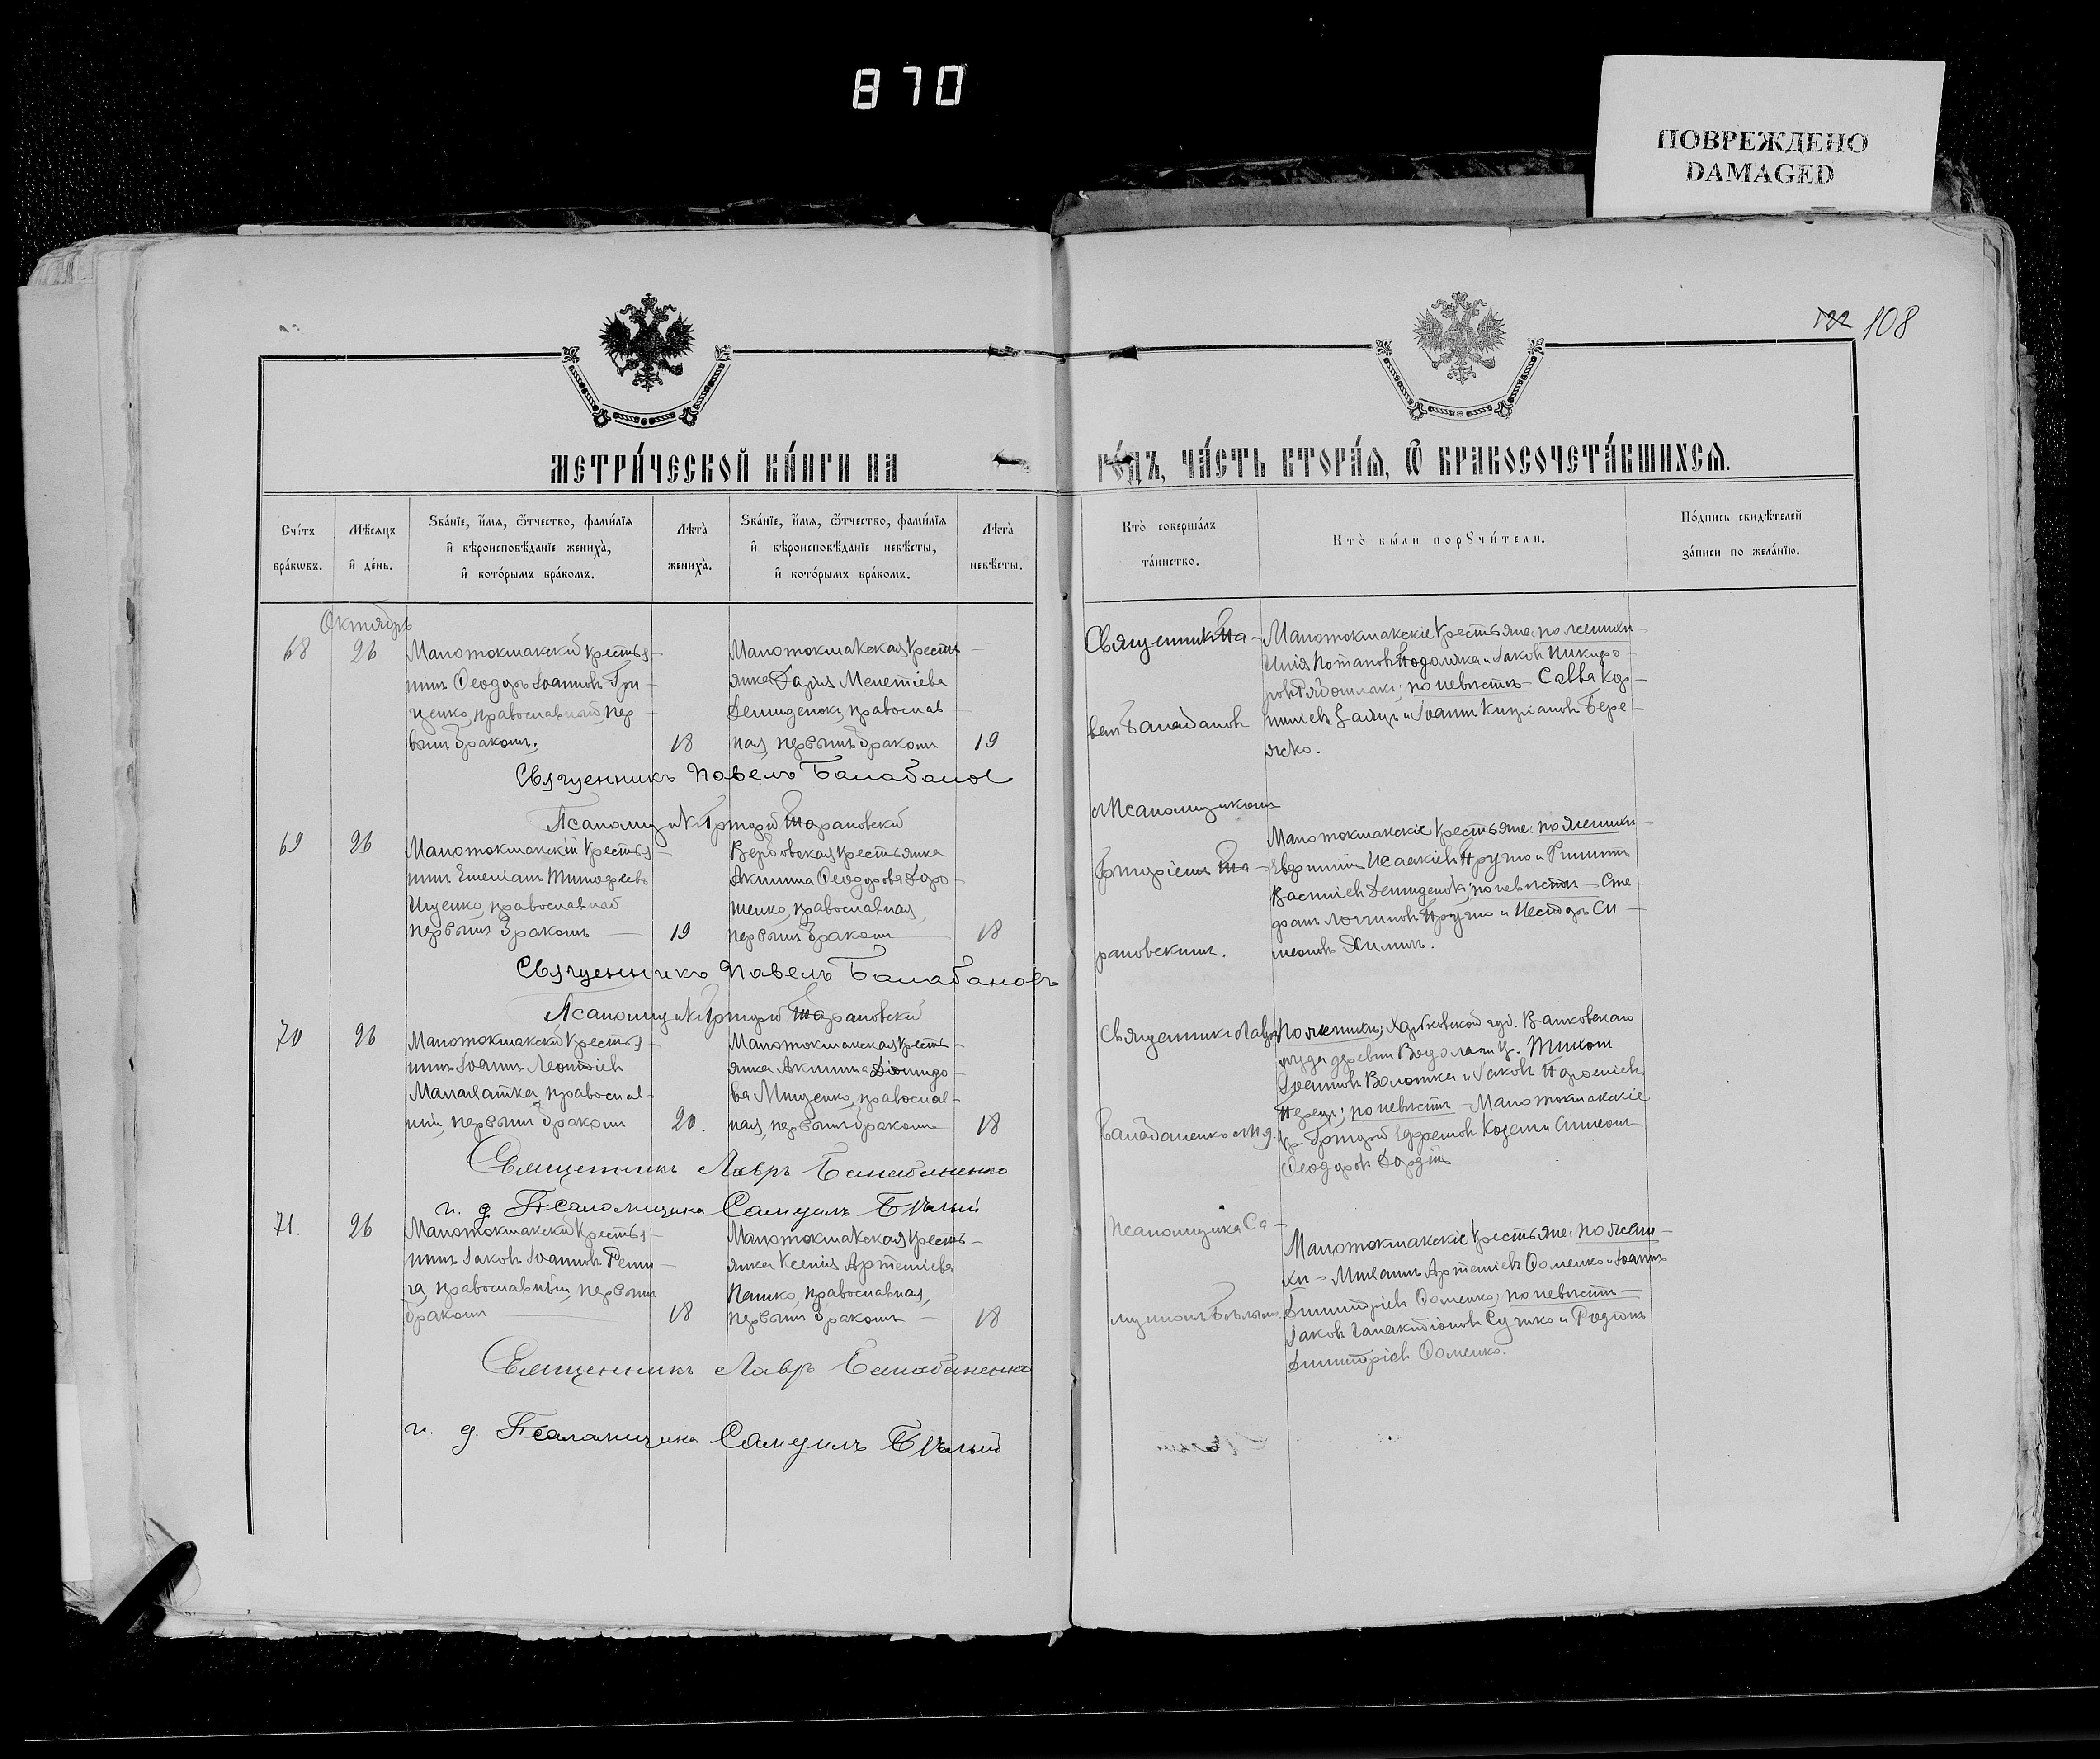 870
ПОВРЕЖДЕНО
DAMAGED
122 108
МЕТРИ́ЧЕСКОЙ КНИ́ГИ НА
ГО́ДЪ, ЧА́СТЬ ВТОРА́Я, Ѿ БРАКОСОЧЕТА́ВШИХСЯ.
Сче́тъ
бра́кѡвъ.
Мѣ́сяцъ
и҆ де́нь.
Ѕва́нїе, и҆́мя, ѻ҆́тчество, фами́лїя
и҆ вѣроисповѣ́данїе жениха̀,
и҆ кото́рымъ бра́комъ.
Лѣ́та
жениха̀.
Ѕва́нїе, и҆́мя, ѻ҆́тчество, фами́лїя
и҆ вѣроисповѣ́данїе невѣ́сты,
и҆ кото́рымъ бра́комъ.
Лѣ́та
невѣ́сты.
Кто̀ соверша́лъ
та́инство.
Кто̀ бы́ли порꙋчи́тели.
По́дпись свидѣ́телей
за́писи по жела́нїю.
Октябрь
68
26
Малотокмакскій крестья-
нинъ Ѳеодоръ Іоанновъ Гри-
ценко, православный, пер-
вымъ бракомъ.
18
Малотокмакская крестья-
янка Дарія Мелетіева
Демиденко, православ-
ная, первымъ бракомъ
19
Священникъ Па-
велъ Балабановъ
Малотокмакскіе крестьяне: по женихѣ
Илія Потаповъ Подоляка и Іаковъ Никифо-
ровъ; по невѣстѣ – Савва Кор-
ниліевъ Заяцъ и Іоаннъ Кипріановъ Бере-
Священникъ Павелъ Балабановъ
Псаломщикъ Григорій Тарановскій
съ Псаломщикомъ
Григоріемъ Та-
рановскимъ.
69
26
Малотокмакскій крестья-
нинъ Емеліанъ Тимофеевъ
Ищенко, православный
первымъ бракомъ
19
Вербовская крестьянка
Акилина Ѳеодорова Доро-
шенко, православная,
первымъ бракомъ
18
Малотокмакскіе крестьяне: по женихѣ
Евфимій Исаакіевъ и Филиппъ
Василіевъ Демиденко; по невѣстѣ – Сте-
фанъ Логгиновъ и Несторъ Си-
меоновъ Химичъ.
Священникъ Павелъ Балабановъ
Псаломщикъ Григорій Тарановскій
70
26
Малотокмакскій крестья-
нинъ Іоаннъ Леонтіевъ
Малахатка, православ-
ный, первымъ бракомъ
20.
Малотокмакская кресть-
янка Акилина Діомидо-
ва Мищенко, православ-
ная, первымъ бракомъ
18
Священникъ Лавръ
Балабаненко и и. д.
По женихѣ; Харьковской губ. Валковскаго
уѣзда деревни Водолаги кр. Тихонъ
Іоанновъ Волошка и Іаковъ Парѳеніевъ
; по невѣстѣ – Малотокмакскіе
кр. Григорій Ефремовъ и Симеонъ
Ѳеодоровъ
Священникъ Лавръ Балабаненко
и. д. Псаломщика Самуилъ Бѣлый
71.
26
Малотокмакскій крестья-
нинъ Іаковъ Іоанновъ Репи-
ча, православный, первымъ
бракомъ
18
Малотокмакская кресть-
янка Ксенія Артеміева
Пашко, православная,
первымъ бракомъ
18
псаломщика Са-
муиломъ Бѣлымъ.
Малотокмакскіе крестьяне: по жени-
хѣ – Михаилъ Артеміевъ Ѳоменко и Іоаннъ
Димитріевъ Ѳоменко; по невѣстѣ –
Іаковъ Галактіоновъ Сучко и Родіонъ
Димитріевъ Ѳоменко.
Священникъ Лавръ Балабаненко
и. д. Псаломщика Самуилъ Бѣлый